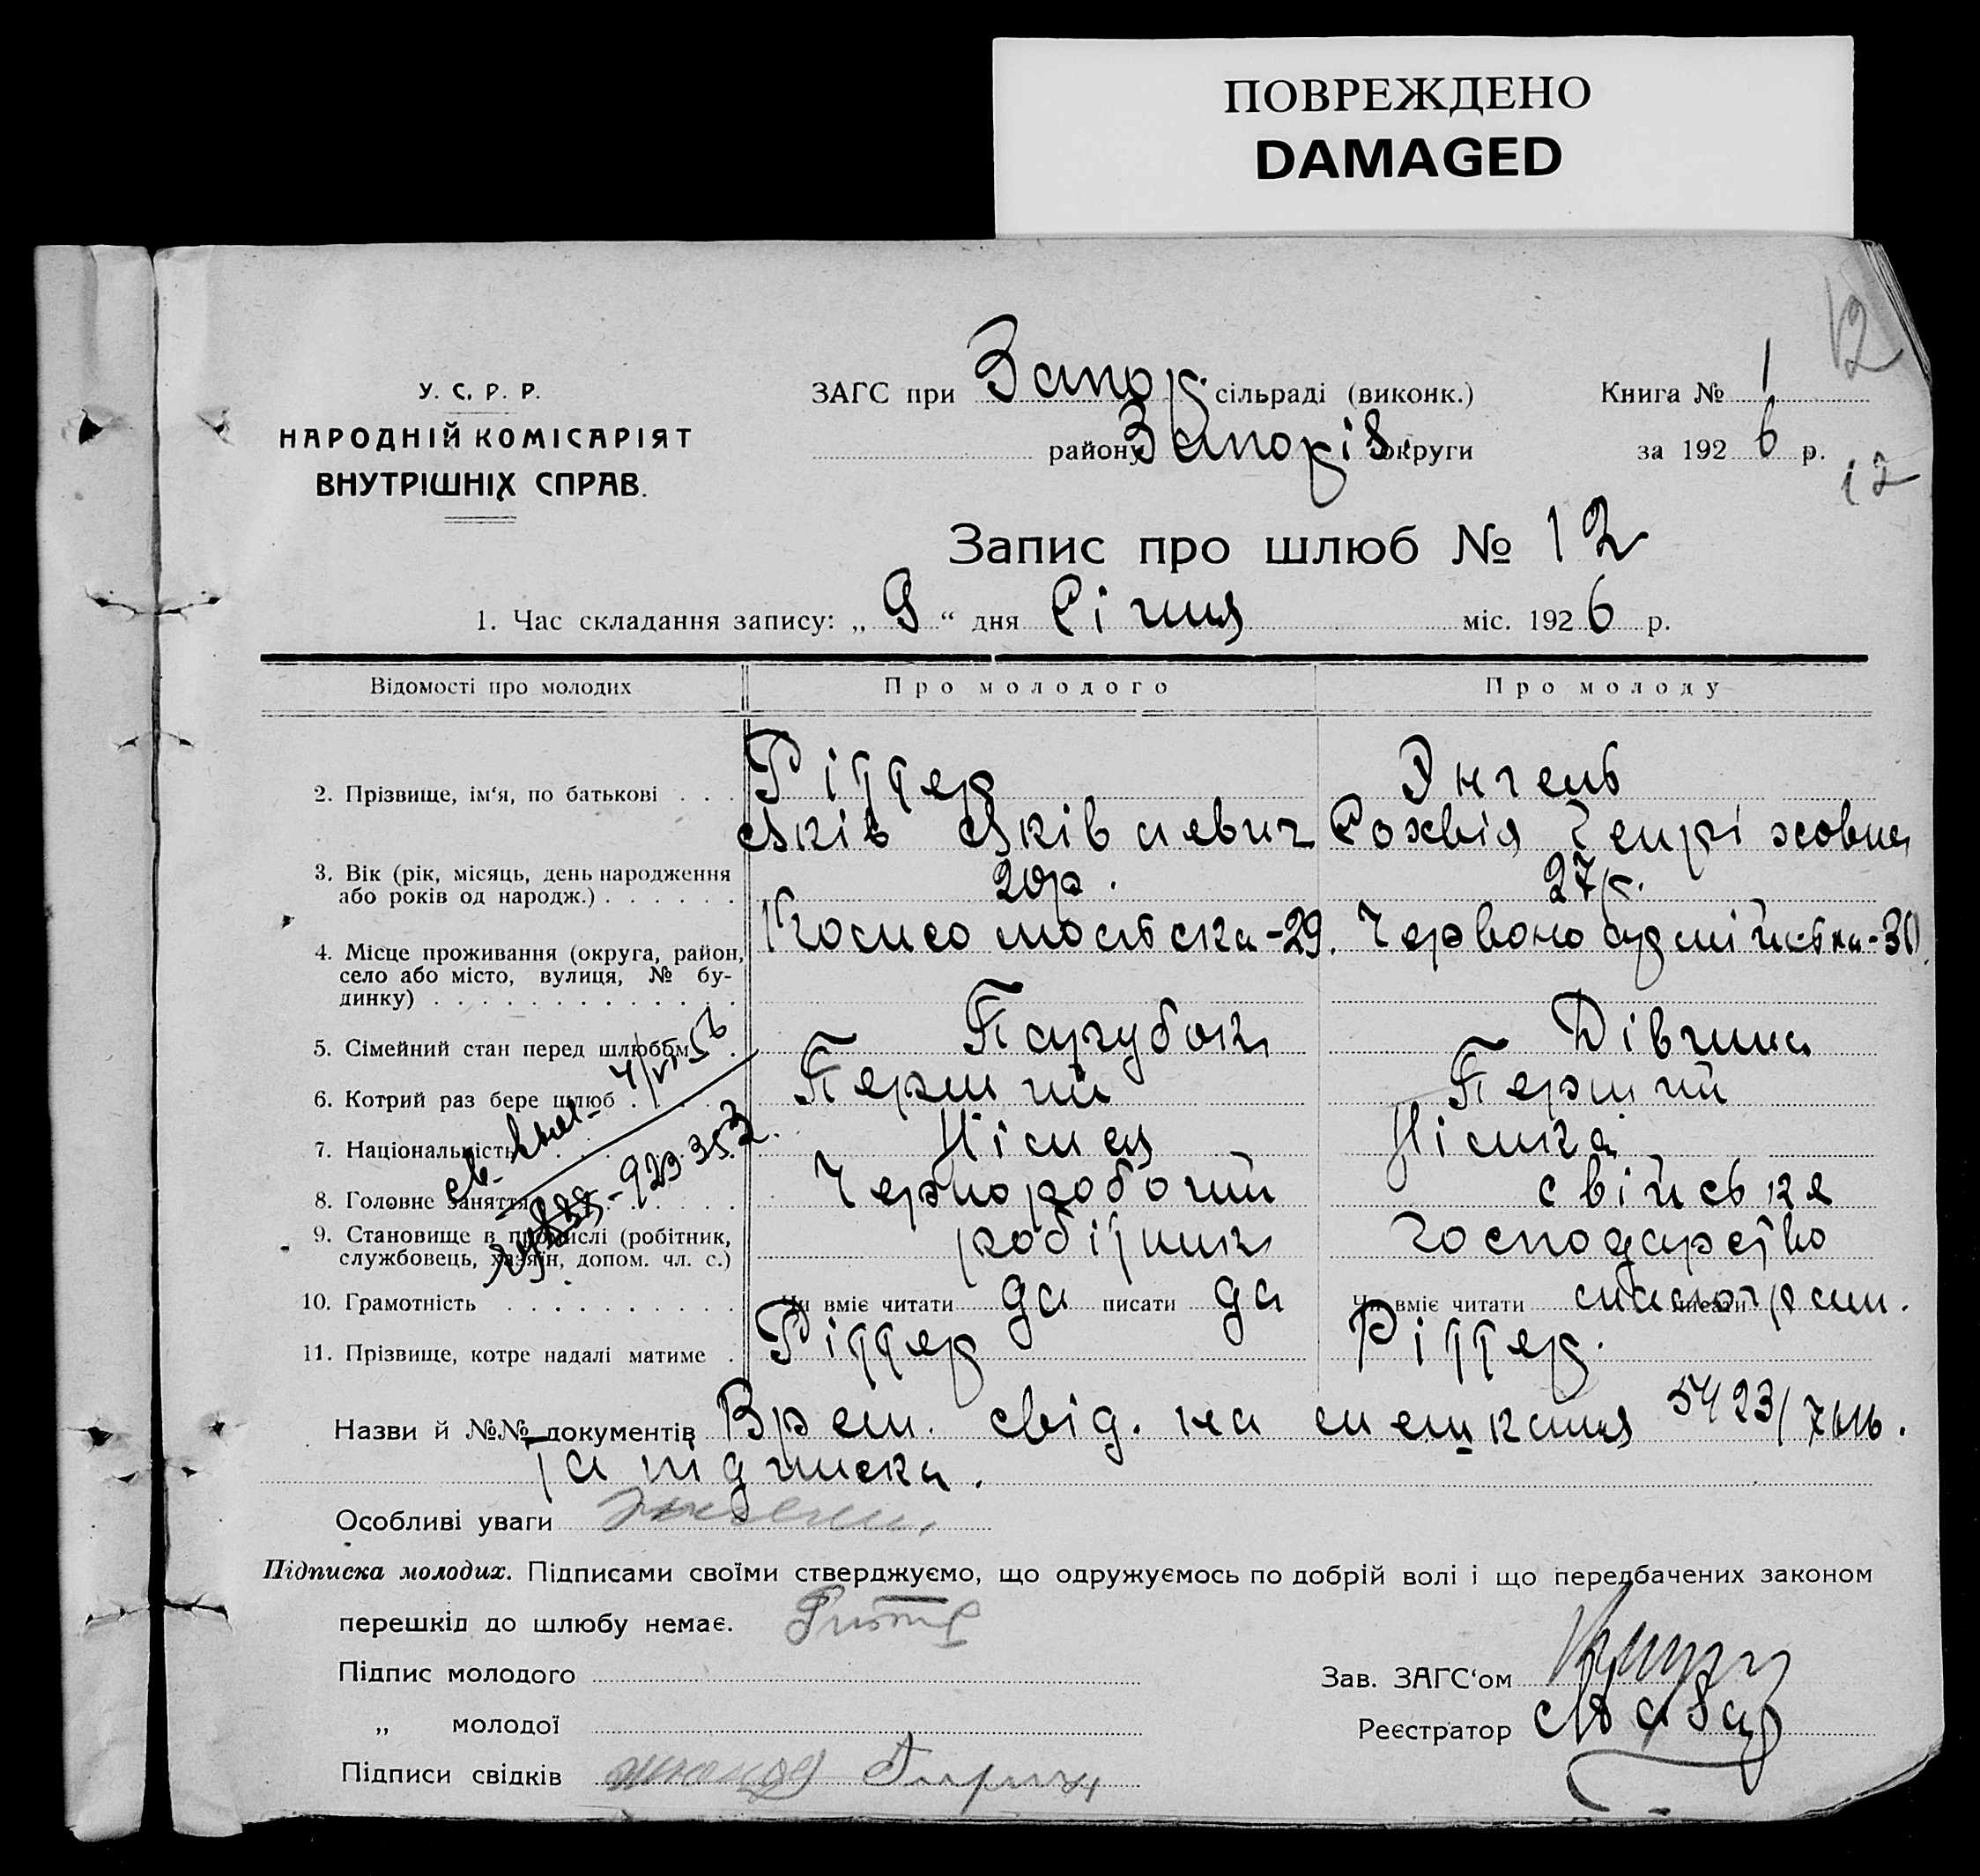 ПОВРЕЖДЕНО
DAMAGED
12
У. С. Р. Р.
НАРОДНІЙ КОМІСАРІЯТ
ВНУТРІШНІХ СПРАВ.
ЗАГС при Запор. сільраді (виконк.)
району Запоріз. округи
Книга № 1
за 1926 р.
12
Запис про шлюб № 12
1. Час складання запису: „9“ дня Січня міс. 1926 р.
Відомості про молодих Про молодого Про молоду
2. Прізвище, ім‘я, по батькові . . . Ріттер Энгель
Яків Яківлевич Софвія Генріховна
3. Вік (рік, місяць, день народження
або років од народж.) . . . . . . 20р. 27р.
4. Місце проживання (округа, район,
село або місто, вулиця, № бу-
динку) . . . . . . . . . . . . . . Косисомостська-29. Червоноармійська-30
5. Сімейний стан перед шлюбом . Паругубок Дівчина
6. Котрий раз бере шлюб . . . . . Перший Перший
7. Національність . . . . . Німец Німка
8. Головне заняття . . . . . Черноробочий свійське
9. Становище в промислі (робітник,
службовець, хазяїн, допом. чл. с.) робітник господарство
4/VI 56
923353
10. Грамотність . . . . . . . . . . Чи вміє читати да писати да Чи вміє читати писати малограм.
11. Прізвище, котре надалі матиме . Ріттер Ріттер.
Назви й №№ документів Врем. свід. на мешкання 5423/7616.
та підписка.
Особливі уваги
Підписка молодих. Підписами своїми стверджуємо, що одружуємось по добрій волі і що передбачених законом
перешкід до шлюбу немає.
Підпис молодого
„ молодої
Підписи свідків
Зав. ЗАГС‘ом
Реєстратор